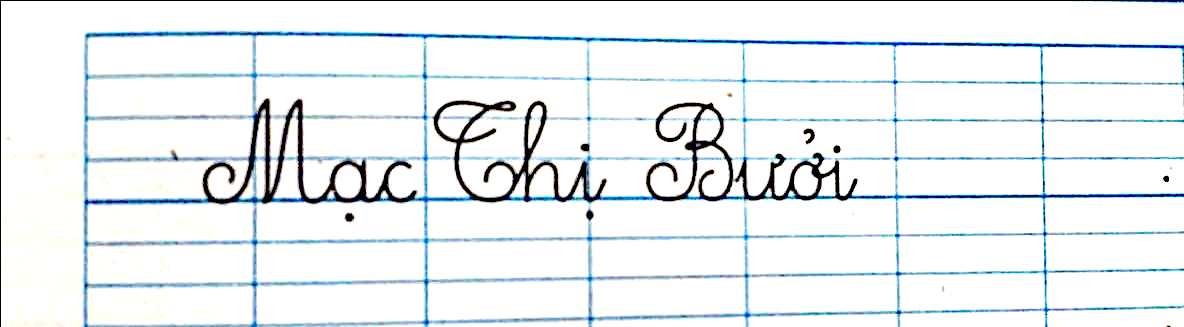 Mạc Thị Bưởi